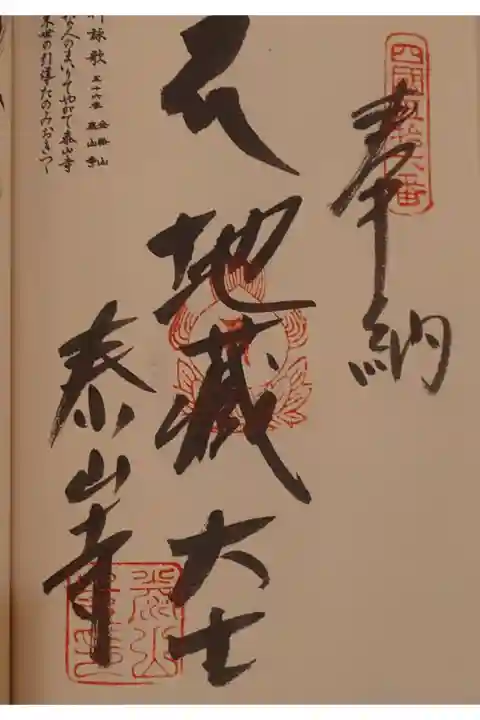 四国五拾六番
奉納
地蔵大士
泰山寺
詠歌 五十六番 金輪山 泰山寺
みな人のまいりてやがて泰山寺
来世の引導たのみおきつゝ